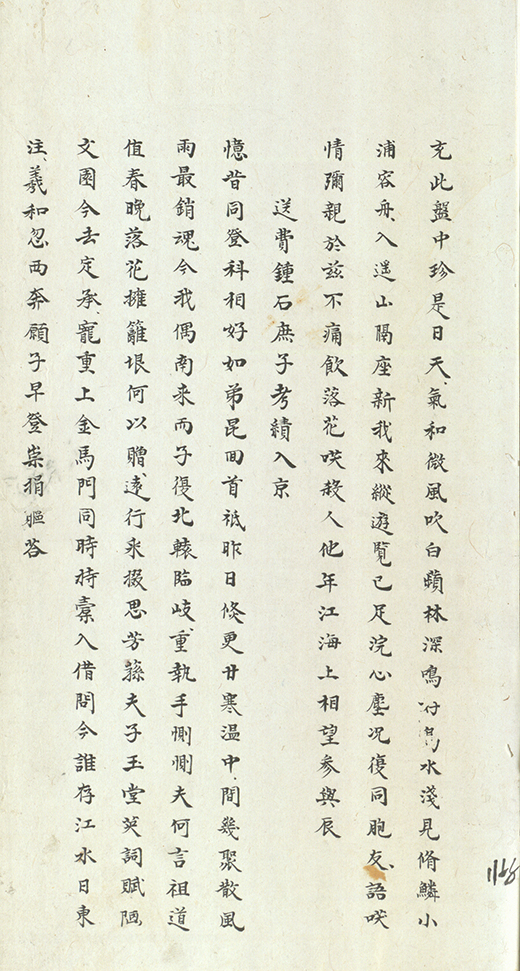 充此盤中珍是日天氣和微風吹白蘋林深鳴水淺見脩鱗小
浦容舟入遥山隔座新我來縱遊覧已足浣心塵况復同胞友語咲
情彌親於兹不痛飲落花咲殺人他年江海上相望參與辰
送費鍾石庶子考績入京
憶昔同登科相好如弟昆回首祗昨日倐更廿寒温中間幾聚散風
雨最銷魂今我偶南来而子復北轅臨岐重執手惻惻夫何言祖道
值春晚落花擁籬垠何以贈遠行采掇思芳蓀夫子玉堂英詞賦陋
文園今去定承寵重上金馬門同時持橐入借問今誰存江水日東
注羲和忽西奔願子早登崇捐軀荅